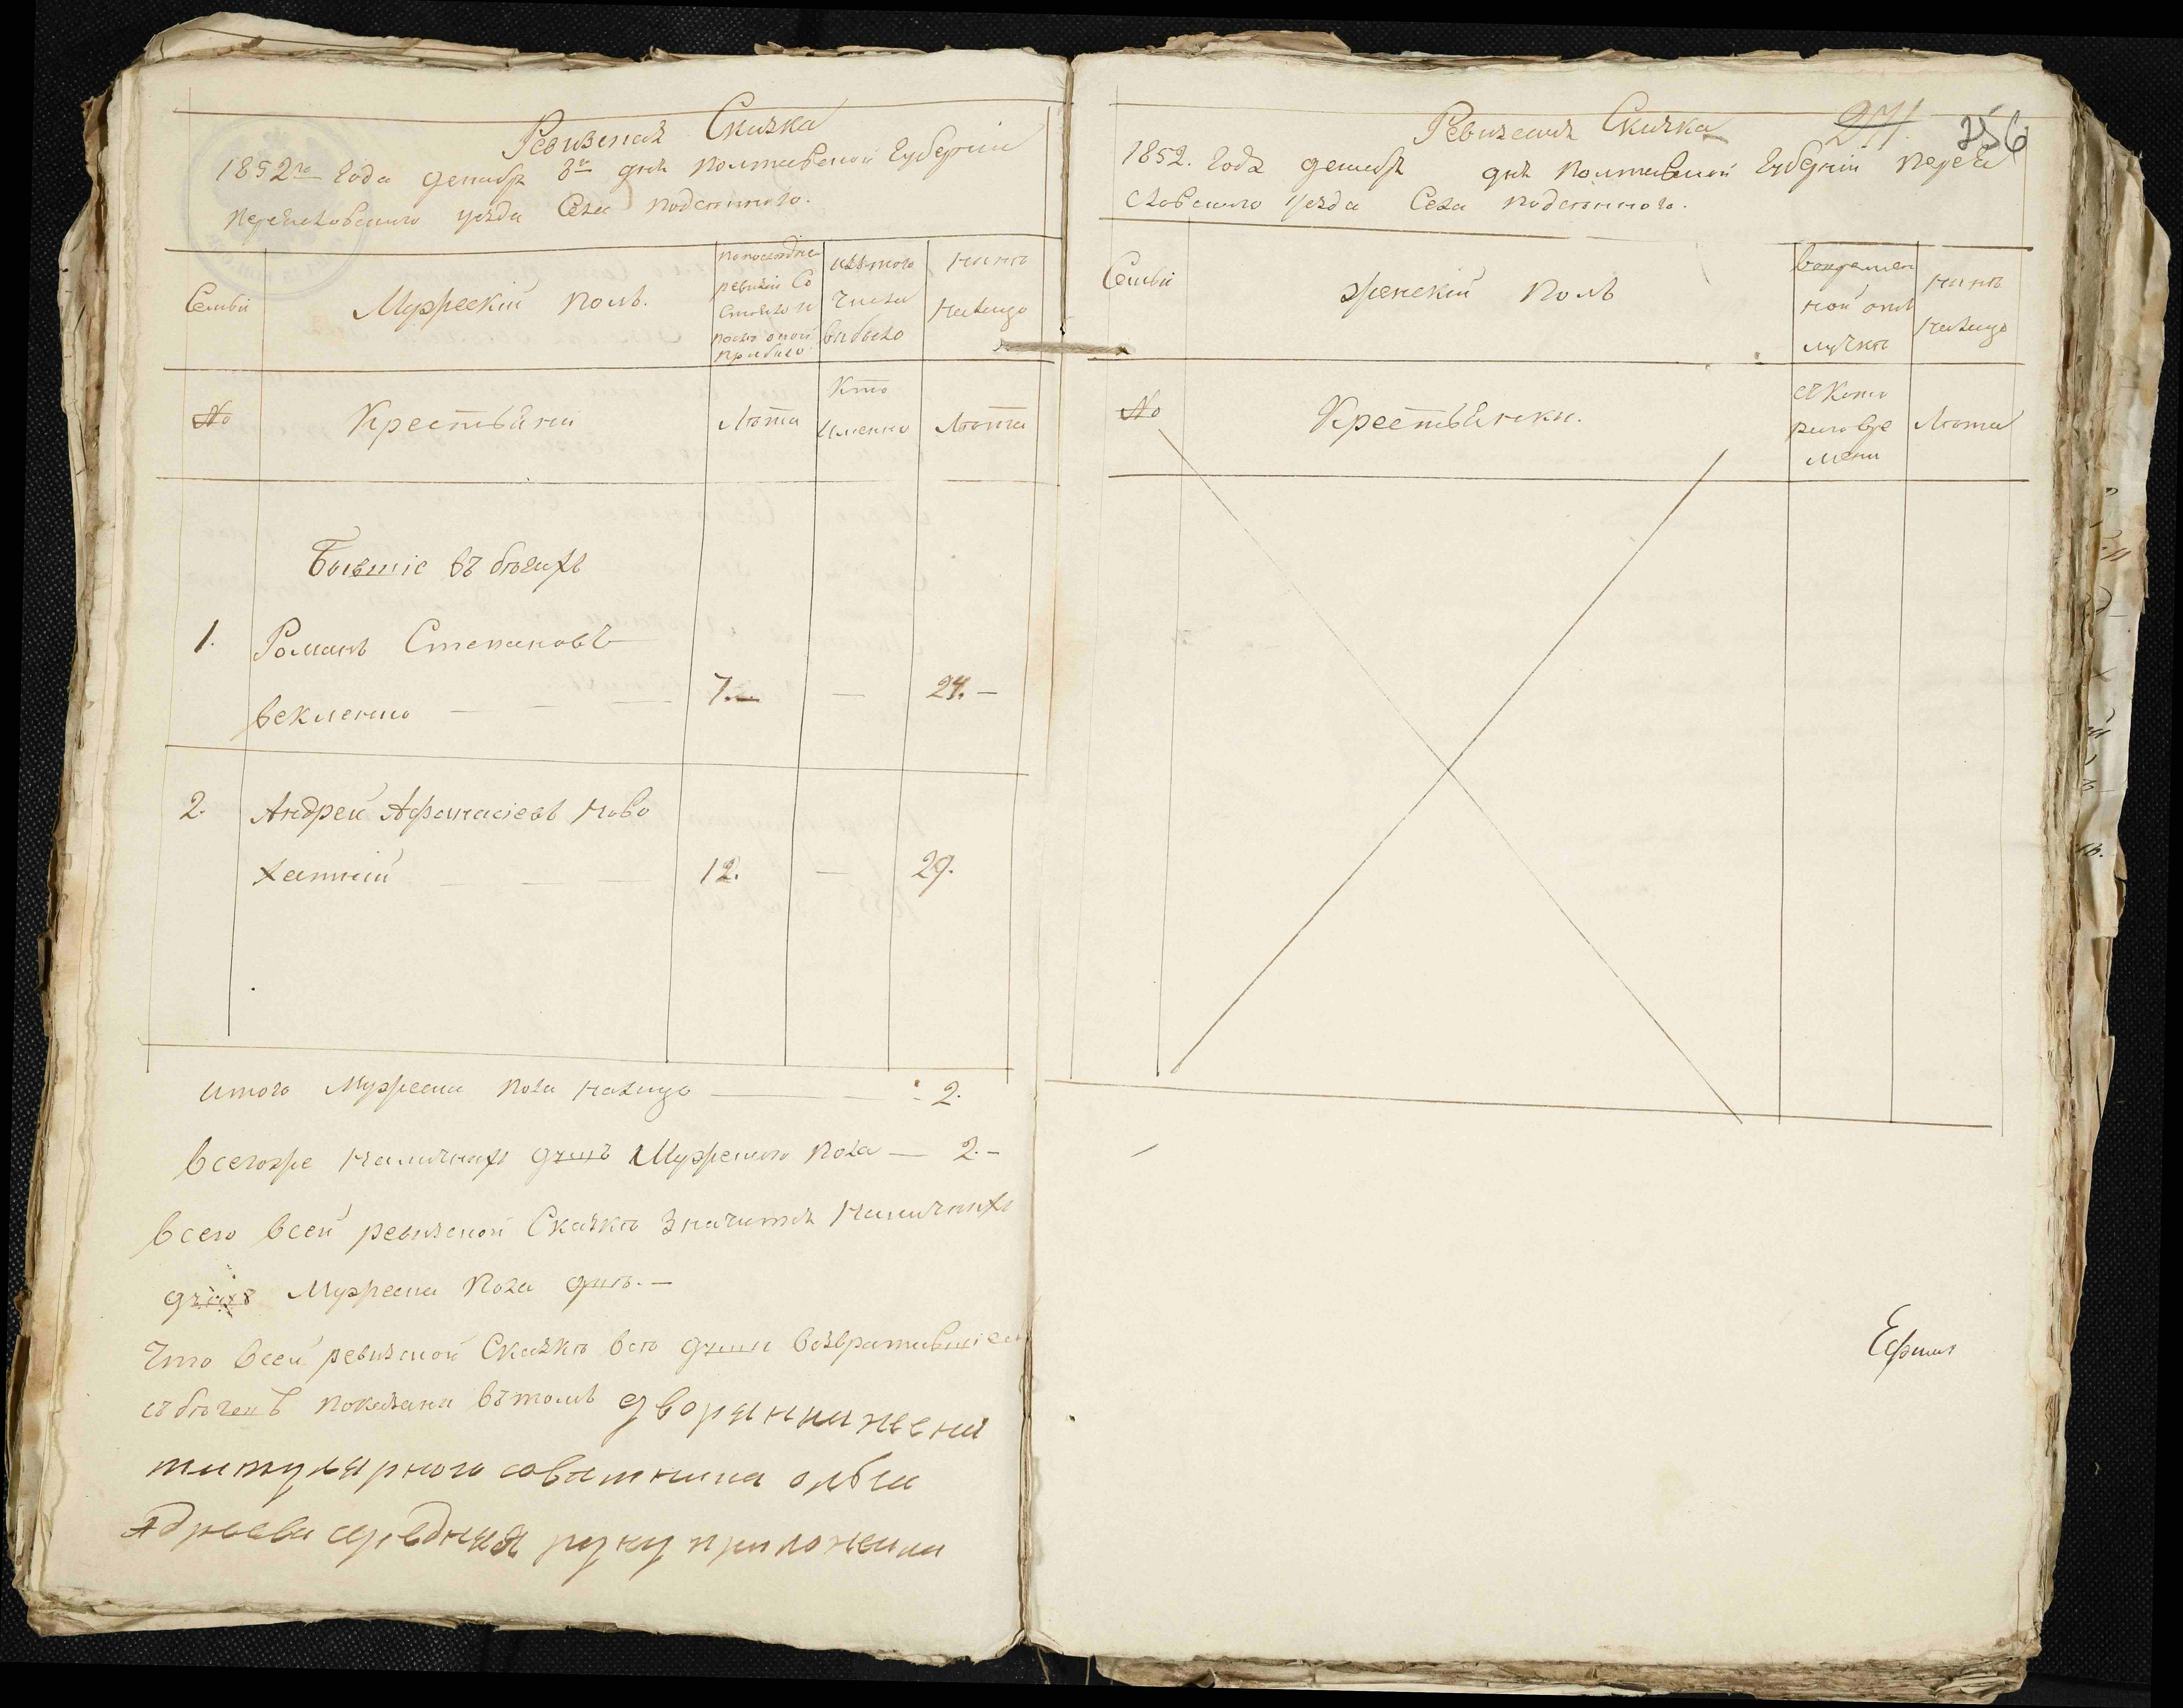 Ревизская Сказка
1852го Года декабря 3го дня Полтавской Губернии
Переяславского уезда Села Подсеннаго.
Семьи
Мужескій Полъ.
По последней
ревизіи Со
стояло и
после оной
прибыло
Изъ того
числа
выбыло
Ныне
налицо
№
Крестьяни
Лета
Кто
именно
Лета
Бывшіе въ бегахъ
1. Романъ Степановъ
Векленко 7. — 24. —
2. Андрей Афанасіевъ Ново
хатній 12. — 29.
Итого Мужеска пола налицо 2.
Всегоже Наличныхъ душъ Мужескаго пола — 2. —
Всего в сей ревизской Сказке значится Наличныхъ
душъ Мужеска Пола две. —
Что в сей ревизской Сказке все души возвратившіеся
съ беговъ показаны въ томъ дворянка жена
титулярного советника олга
руку приложила
Ревизская Сказка
271.
356
1852. Года декабря дня Полтавской Губерніи Перея
славского Уезда Села Подсеннаго.
Семьи
Женскій Полъ
Во времен
ной отлу
лучке
Ныне
налицо
№
Крестьянки.
Съ кото
раго вре
мени
Лета